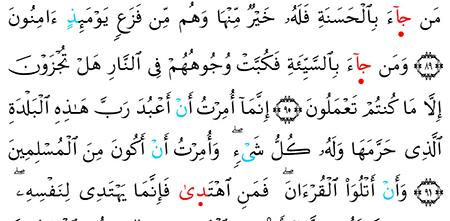 مَن جَآءَ بِٱلْحَسَنَةِ فَلَهُۥ خَيْرٌ مِّنْهَا وَهُم مِّن فَزَعٍ يَوْمَئِذٍ ءَامِنُونَ
٨٩ وَمَن جَآءَ بِٱلسَّيِّئَةِ فَكُبَّتْ وُجُوهُهُمْ فِى ٱلنَّارِ هَلْ تُجْزَوْنَ
إِلَّا مَا كُنتُمْ تَعْمَلُونَ ٩٠ إِنَّمَآ أُمِرْتُ أَنْ أَعْبُدَ رَبَّ هَٰذِهِ ٱلْبَلْدَةِ
ٱلَّذِى حَرَّمَهَا وَلَهُۥ كُلُّ شَىْءٍ ۖ وَأُمِرْتُ أَنْ أَكُونَ مِنَ ٱلْمُسْلِمِينَ
٩١ وَأَنْ أَتْلُوَا۟ ٱلْقُرْءَانَ ۖ فَمَنِ ٱهْتَدَىٰ فَإِنَّمَا يَهْتَدِى لِنَفْسِهِۦ ۖ